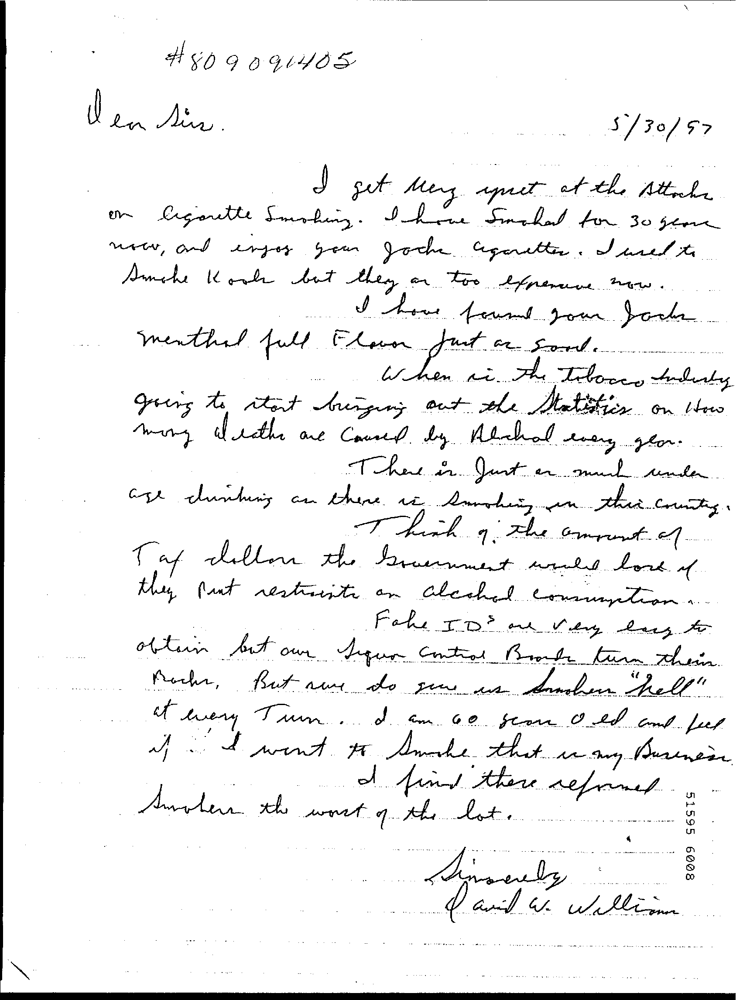 #809091405
Dear Sir.
5/30/97
I get very upset at the Attacks
on Cigarette Smoking. I have Smoked for 30 years
now, and enjoy your Jacks cigarettes. I used to
Smoke Kools but they are too expensive now.
I have found your Jacks
menthol full Flavor Just as good.
When is the Tobacco Industry
going to start bringing out the Statistics on How
many deaths are Caused by Alcohol every year.
There is Just as much under
age drinking as there is Smoking in this Country.
Think of the amount of
Tax dollars the Government would lose if
they Put restraints on alcohol consumption.
Fake IDs are very easy to
obtain but our liquor Control Boards turn their
Backs, But sure do give us Smokers "hell"
at every Turn. I am 60 years Old and feel
if I want to Smoke that is my Business
I find these reformed
Smokers the worst of the lot.
Sincerely
David W. Williams
51595 6008